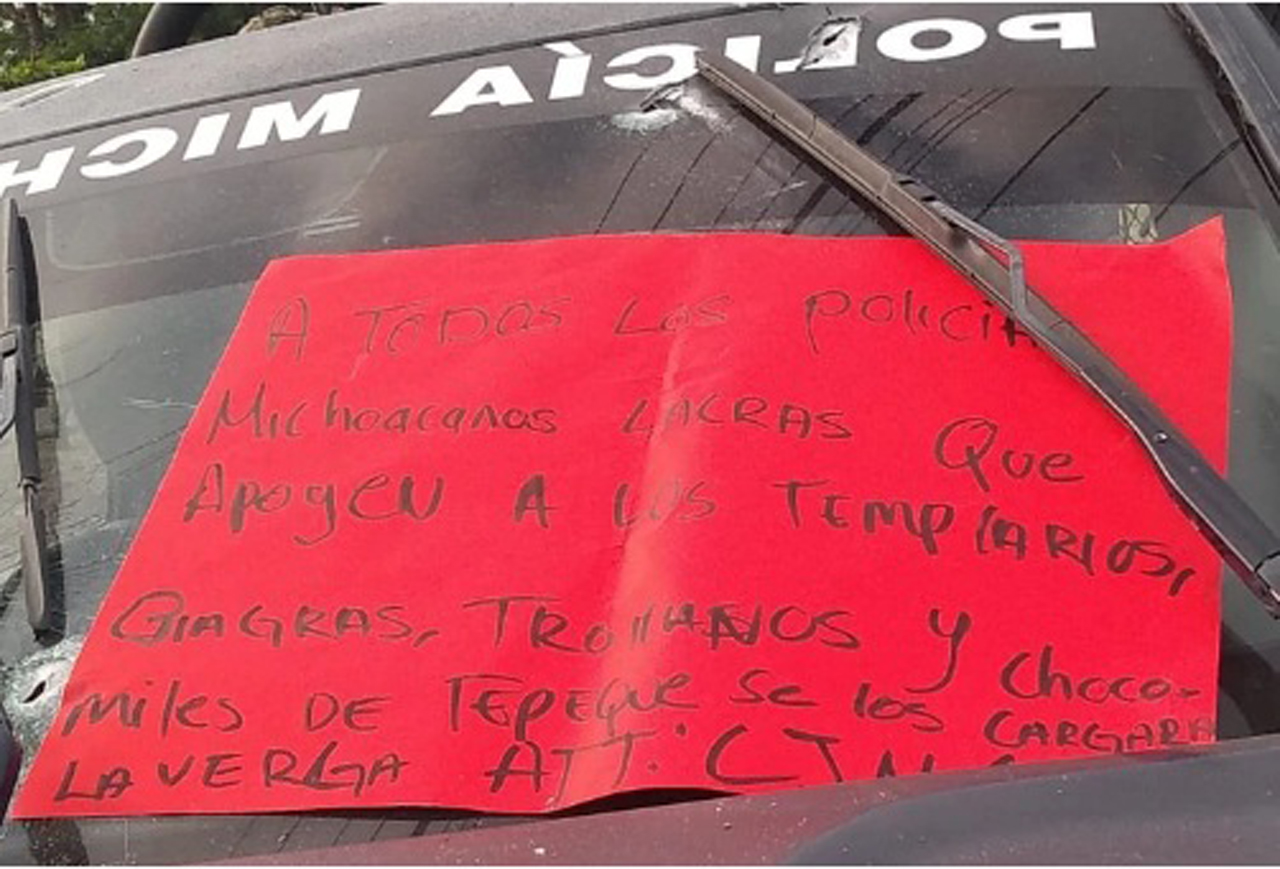 POLICÍA MICH
A TODOS LOS POLICIA
Michoacanos LACRAS Que
Apoyen A LOS TEMPlARIOS,
GIAGRAS, TROIIANOS y Choco-
miles DE TEPEQUE Se los CARGARA
LA VERGA ATT: CJN